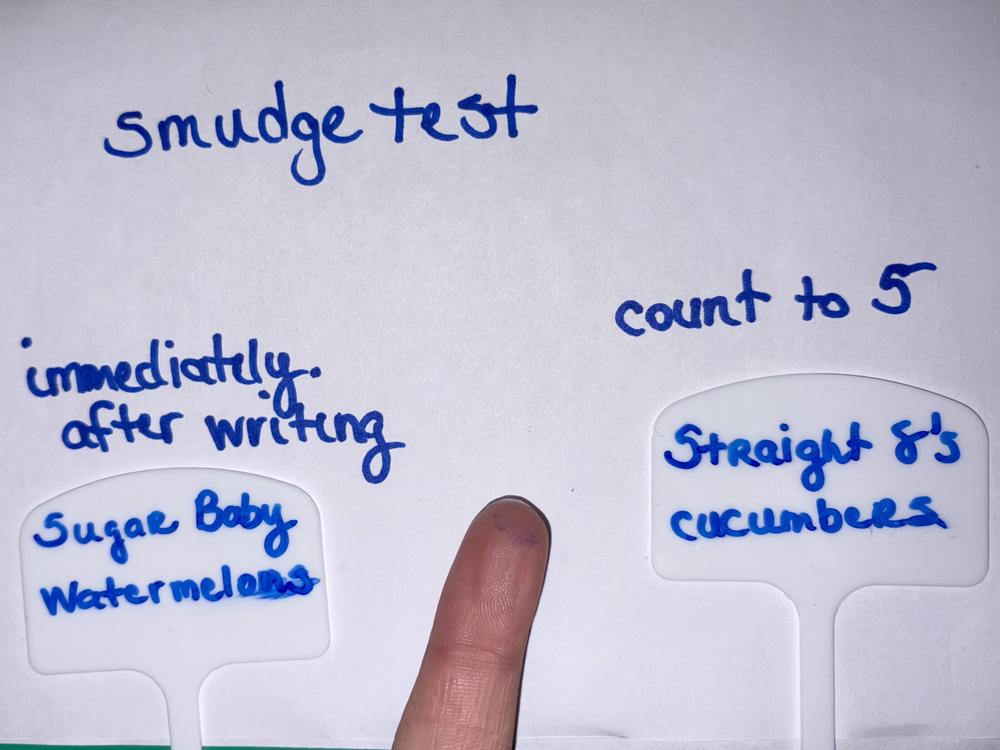 smudge test
count to 5
immediately.
after writing
Straight 8's
cucumbers
Sugar Baby
Watermelons